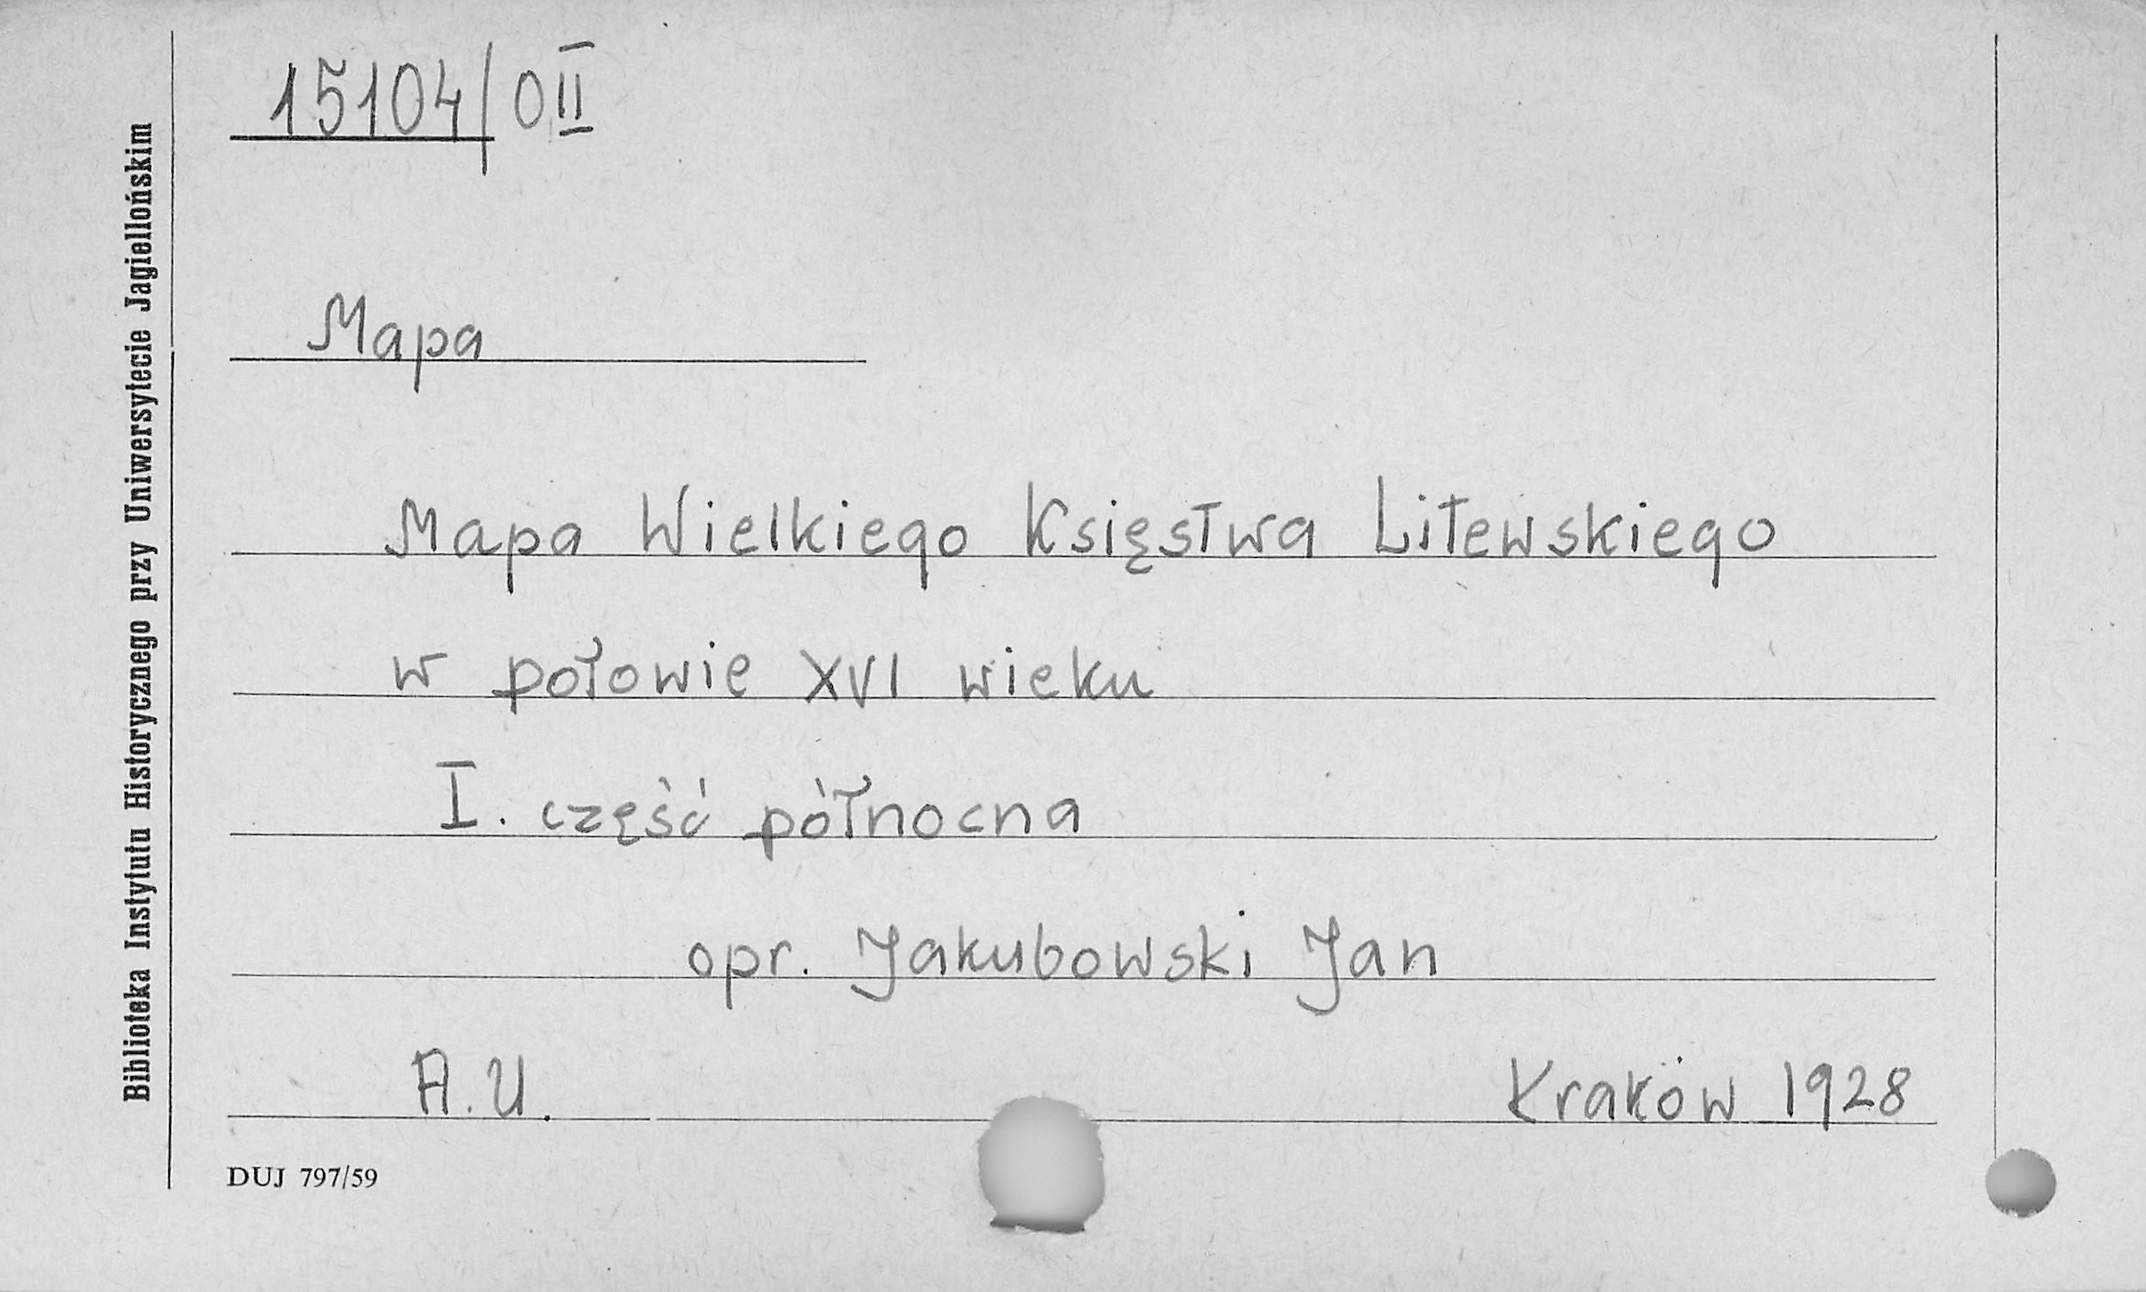 15104/OII
Mapa
Mapa Wielkiego Księstwa Litewskiego
w połowie XVI wieku
I. część północna
opr. Jakubowski Jan
A.U. Kraków 1928
DUJ 797/59
Biblioteka Instytutu Historycznego przy Uniwersytecie Jagiellońskim